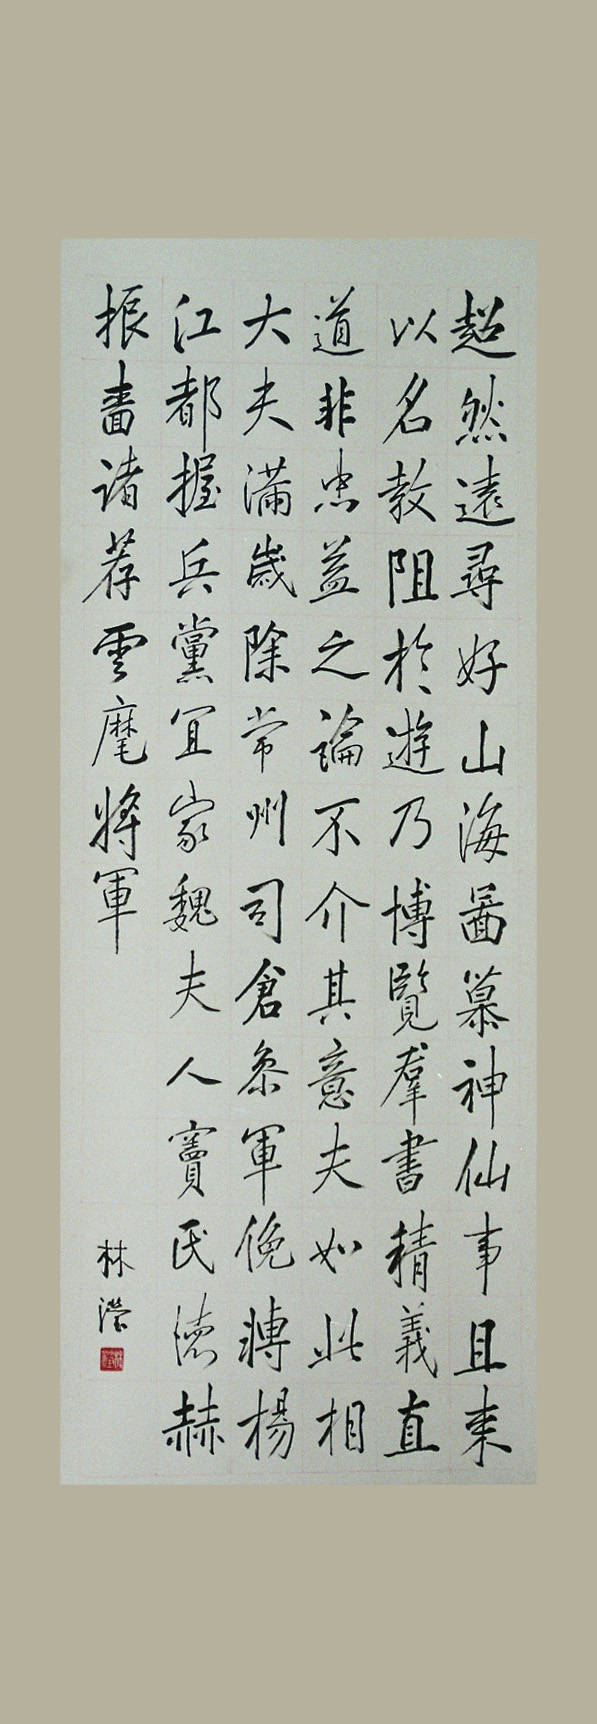 超然遠尋好山海啚慕神仙事且未
以名教阻於遊乃博覽羣書精義直
道非忠益之論不介其意夫如此相
大夫滿歲除常州司倉叅軍俛轉楊
江都握兵黨宜家魏夫人竇氏德赫
振嗇诸荐雲麾將軍
林瀅